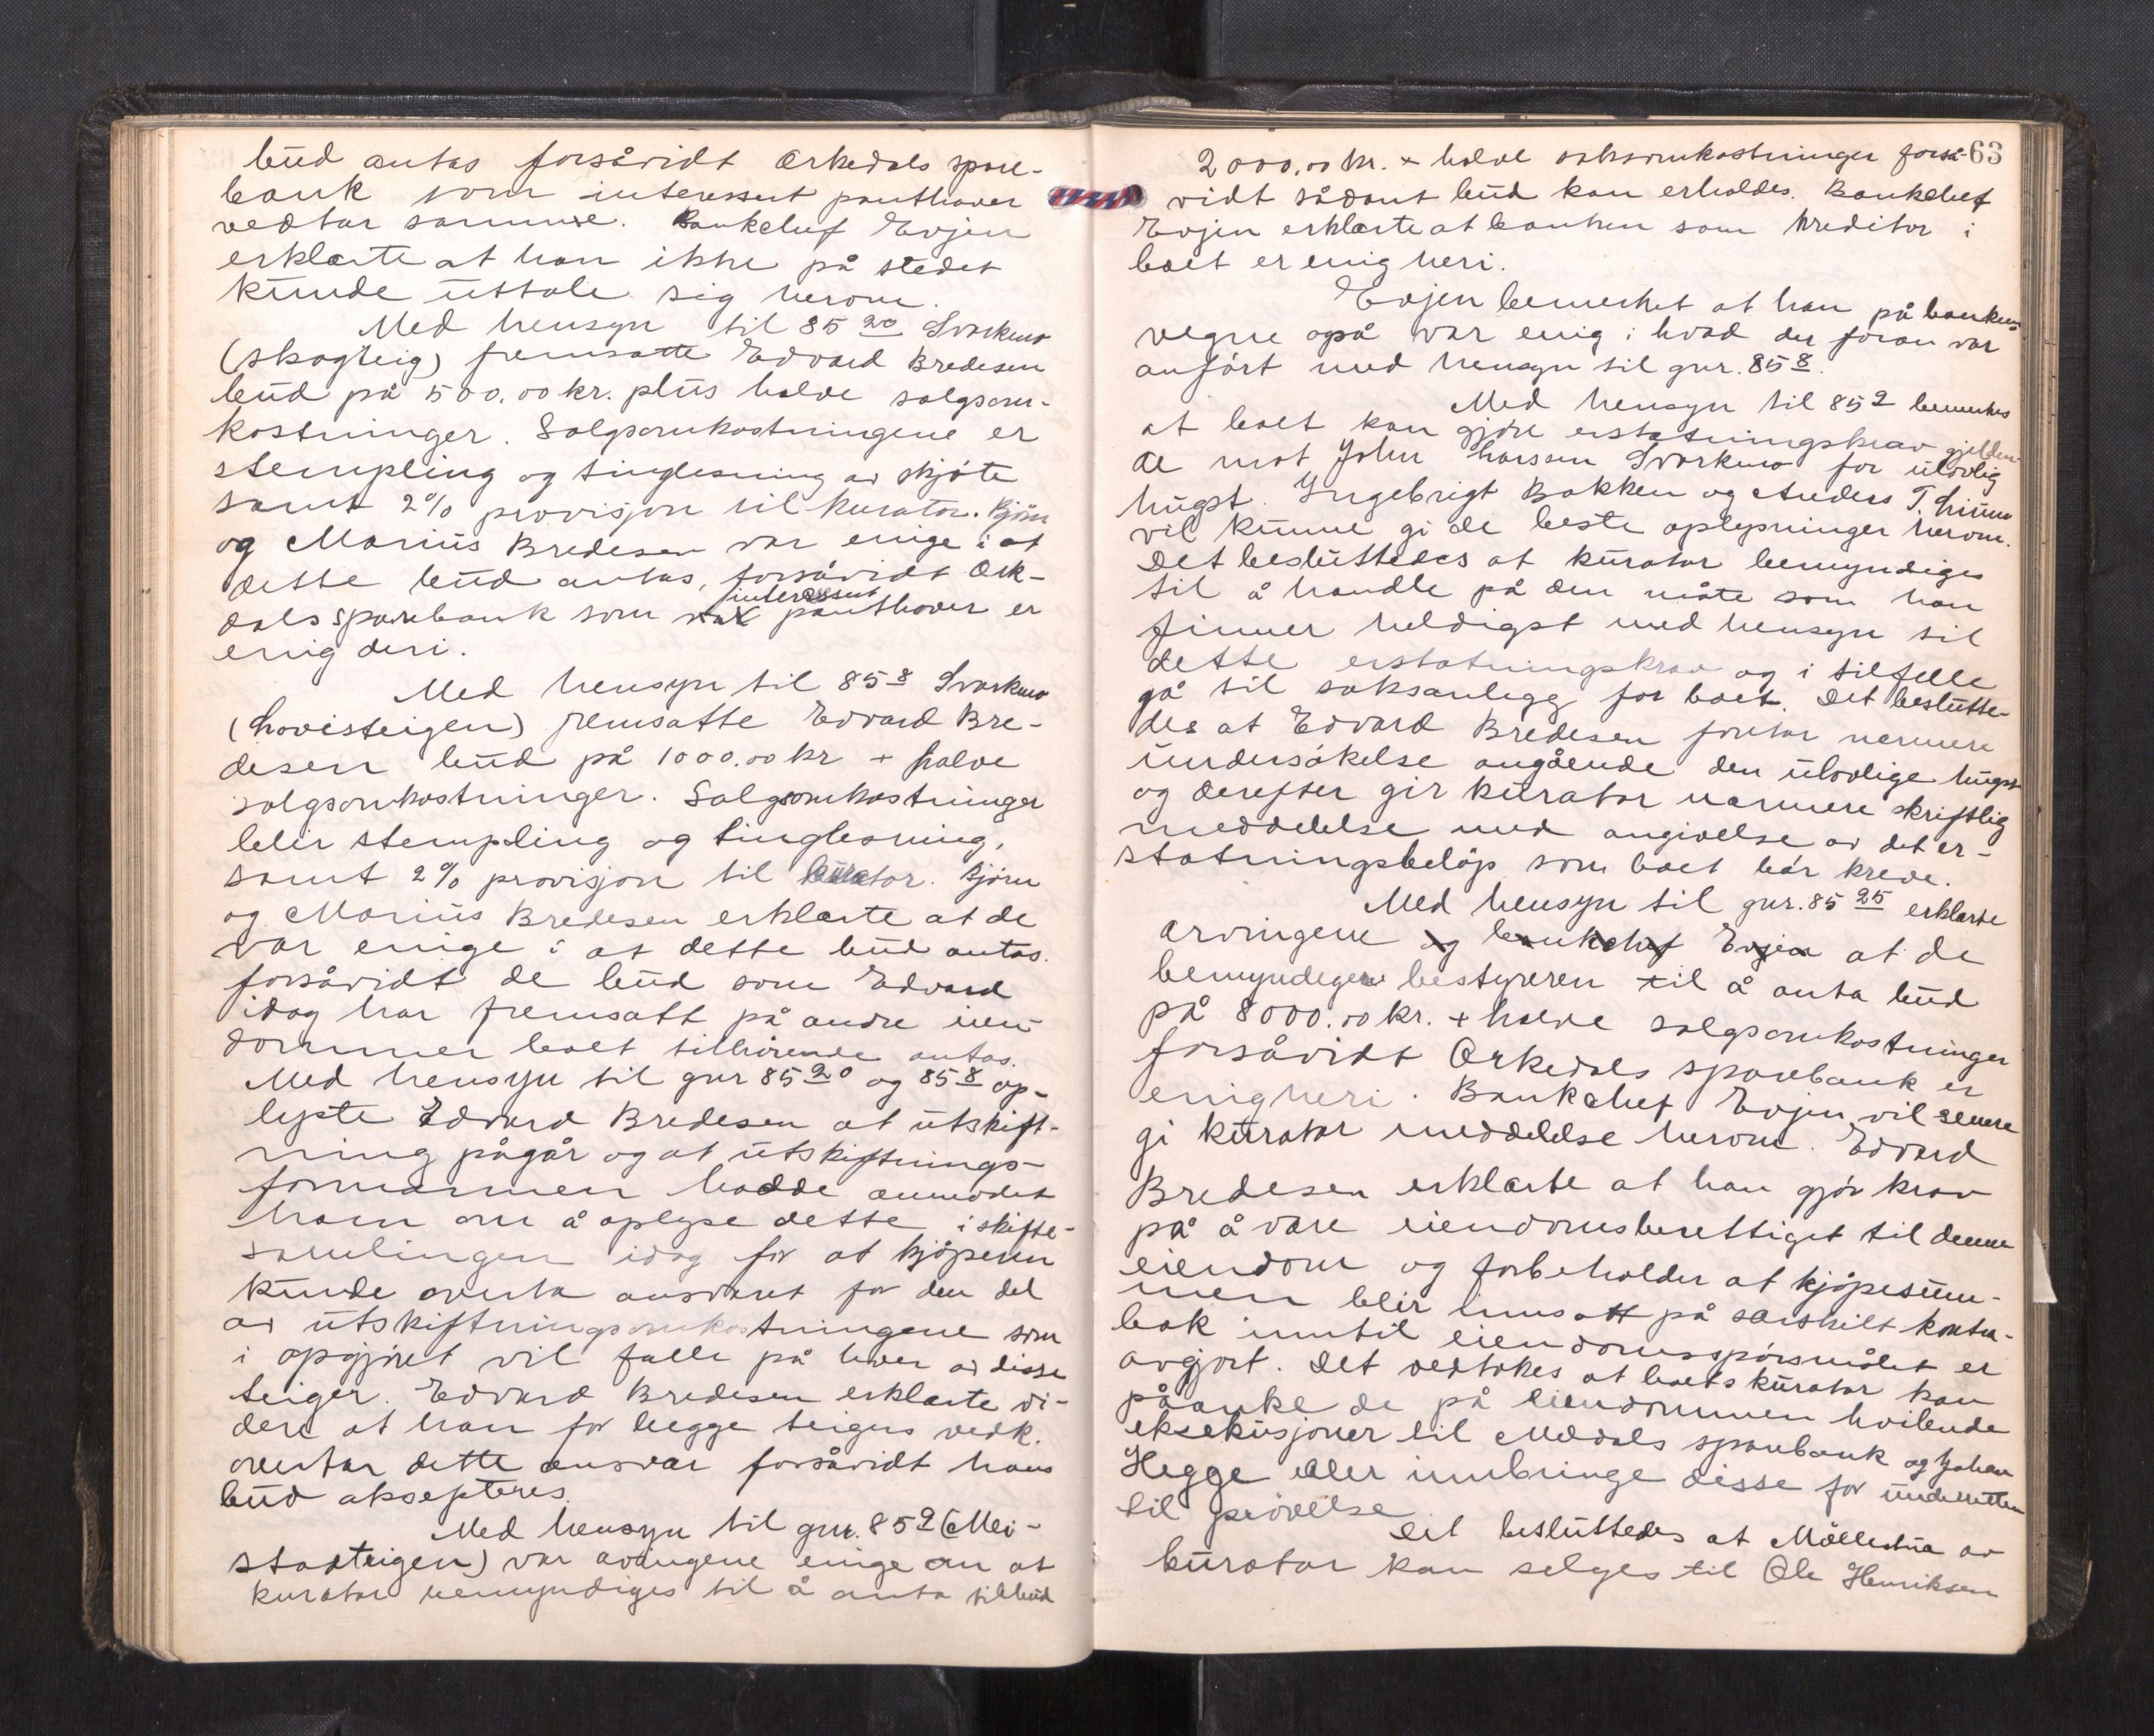 bud antas forsåvidt Orkedals spare-
bank som interessert panthaver
vedtar samme. Bankchef Evjen
erklærte at han ikke på stedet
kunde uttale sig herom.
Med hensyn til 85 20 Svorkmo
(skogteig) fremsatte Edvard Bredesen
bud på 500.00 kr. plus halve salgsom-
kostninger. Salgsomkostningene er
stempling og tinglesning av skjöte
samt 2% provisjon til kurator. Björn
og Marius Bredesen var enige i at
dette bud antas, forsåvidt Ork-
interessert
dals sparebank som panthaver er
enig deri.
Med hensyn til 85 8 Svorkmo
(Lovisteigen) fremsatte Edvard Bre-
desen bud på 1000.00 kr + halve
salgsomkostninger. Salgsomkostninger
blir stempling og tinglesning,
samt 2% provisjon til kurator. Björn
og Marius Bredesen erklærte at de
var enige i at dette bud antas.
forsåvidt de bud som Edvard
idag har fremsatt på andre eien-
dommer boet tilhörende antas.
Med hensyn til gnr 85 20 og 85 8 op-
lyste Edvard Bredesen at utskift-
ning pågår og at utskiftnings-
formannen hadde anmodet
ham om å oplyse dette i skifte-
samlingen idag for at kjöperen
kunde overta ansvaret for den del
av utskiftningsomkostningene som
i opgjöret vil falle på hver av disse
teiger. Edvard Bredesen erklærte vi-
dere at han for begge teigers vedk.
overtar dette ansvar forsåvidt hans
bud aksepteres.
Med hensyn til gnr. 85 2 (Mei-
stadteigen) var arvingene enige om at
kurator bemyndiges til å anta tilbud
63
2000.00 kr. + halve saksomkostninger forså-
vidt sådant bud kan erholdes. Bankchef
Evjen erklærte at banken som kreditor i
boet er enig heri.
Evjen bemerket at han på bankens
vegne også var enig i hvad der foran var
anfört med hensyn til gnr. 85 8.
Med hensyn til 85 2 bemerkes
at boet kan gjöre erstatningskrav gjelden-
de mot John Larssen Svorkmo for ulovlig
hugst. Ingebrigt Bakken og Anders T. Limo
vil kunne gi de beste oplysninger herom.
Det besluttedes at kurator bemyndiges
til å handle på den måte som han
finner heldigst med hensyn til
dette erstatningskrav og i tilfelle
gå til saksanlegg for boet. Det beslutte-
des at Edvard Bredesen foretar nærmere
undersökelse angående den ulovlige hugst
og derefter gir kurator nærmere skriftlig
meddelelse med angivelse av det er-
statningsbelöp som boet bör kreve.
Med hensyn til gnr. 85 25 erklærte
arvingene og bankchef Evjen at de
bemyndiger bestyreren til å anta bud
på 8000.00 kr. + halve salgsomkostninger
forsåvidt Orkedals sparebank er
enig heri. Bankchef Evjen vil senere
gi kurator meddelelse herom. Edvard
Bredesen erklærte at han gjör krav
på å være eiendomsberettiget til denne
eiendom og forbeholder at kjöpesum-
men blir innsatt på særskilt kontra-
bok inntil eiendomsspörsmålet er
avgjort. Det vedtokes at boets kurator kan
påanke de på eiendommen hvilende
eksekusjoner til Meldals sparebank og Johan
Hegge eller innbringe disse for underretten
til prövelse.
Det besluttedes at Möllestua av
kurator kan selges til Ole Henriksen